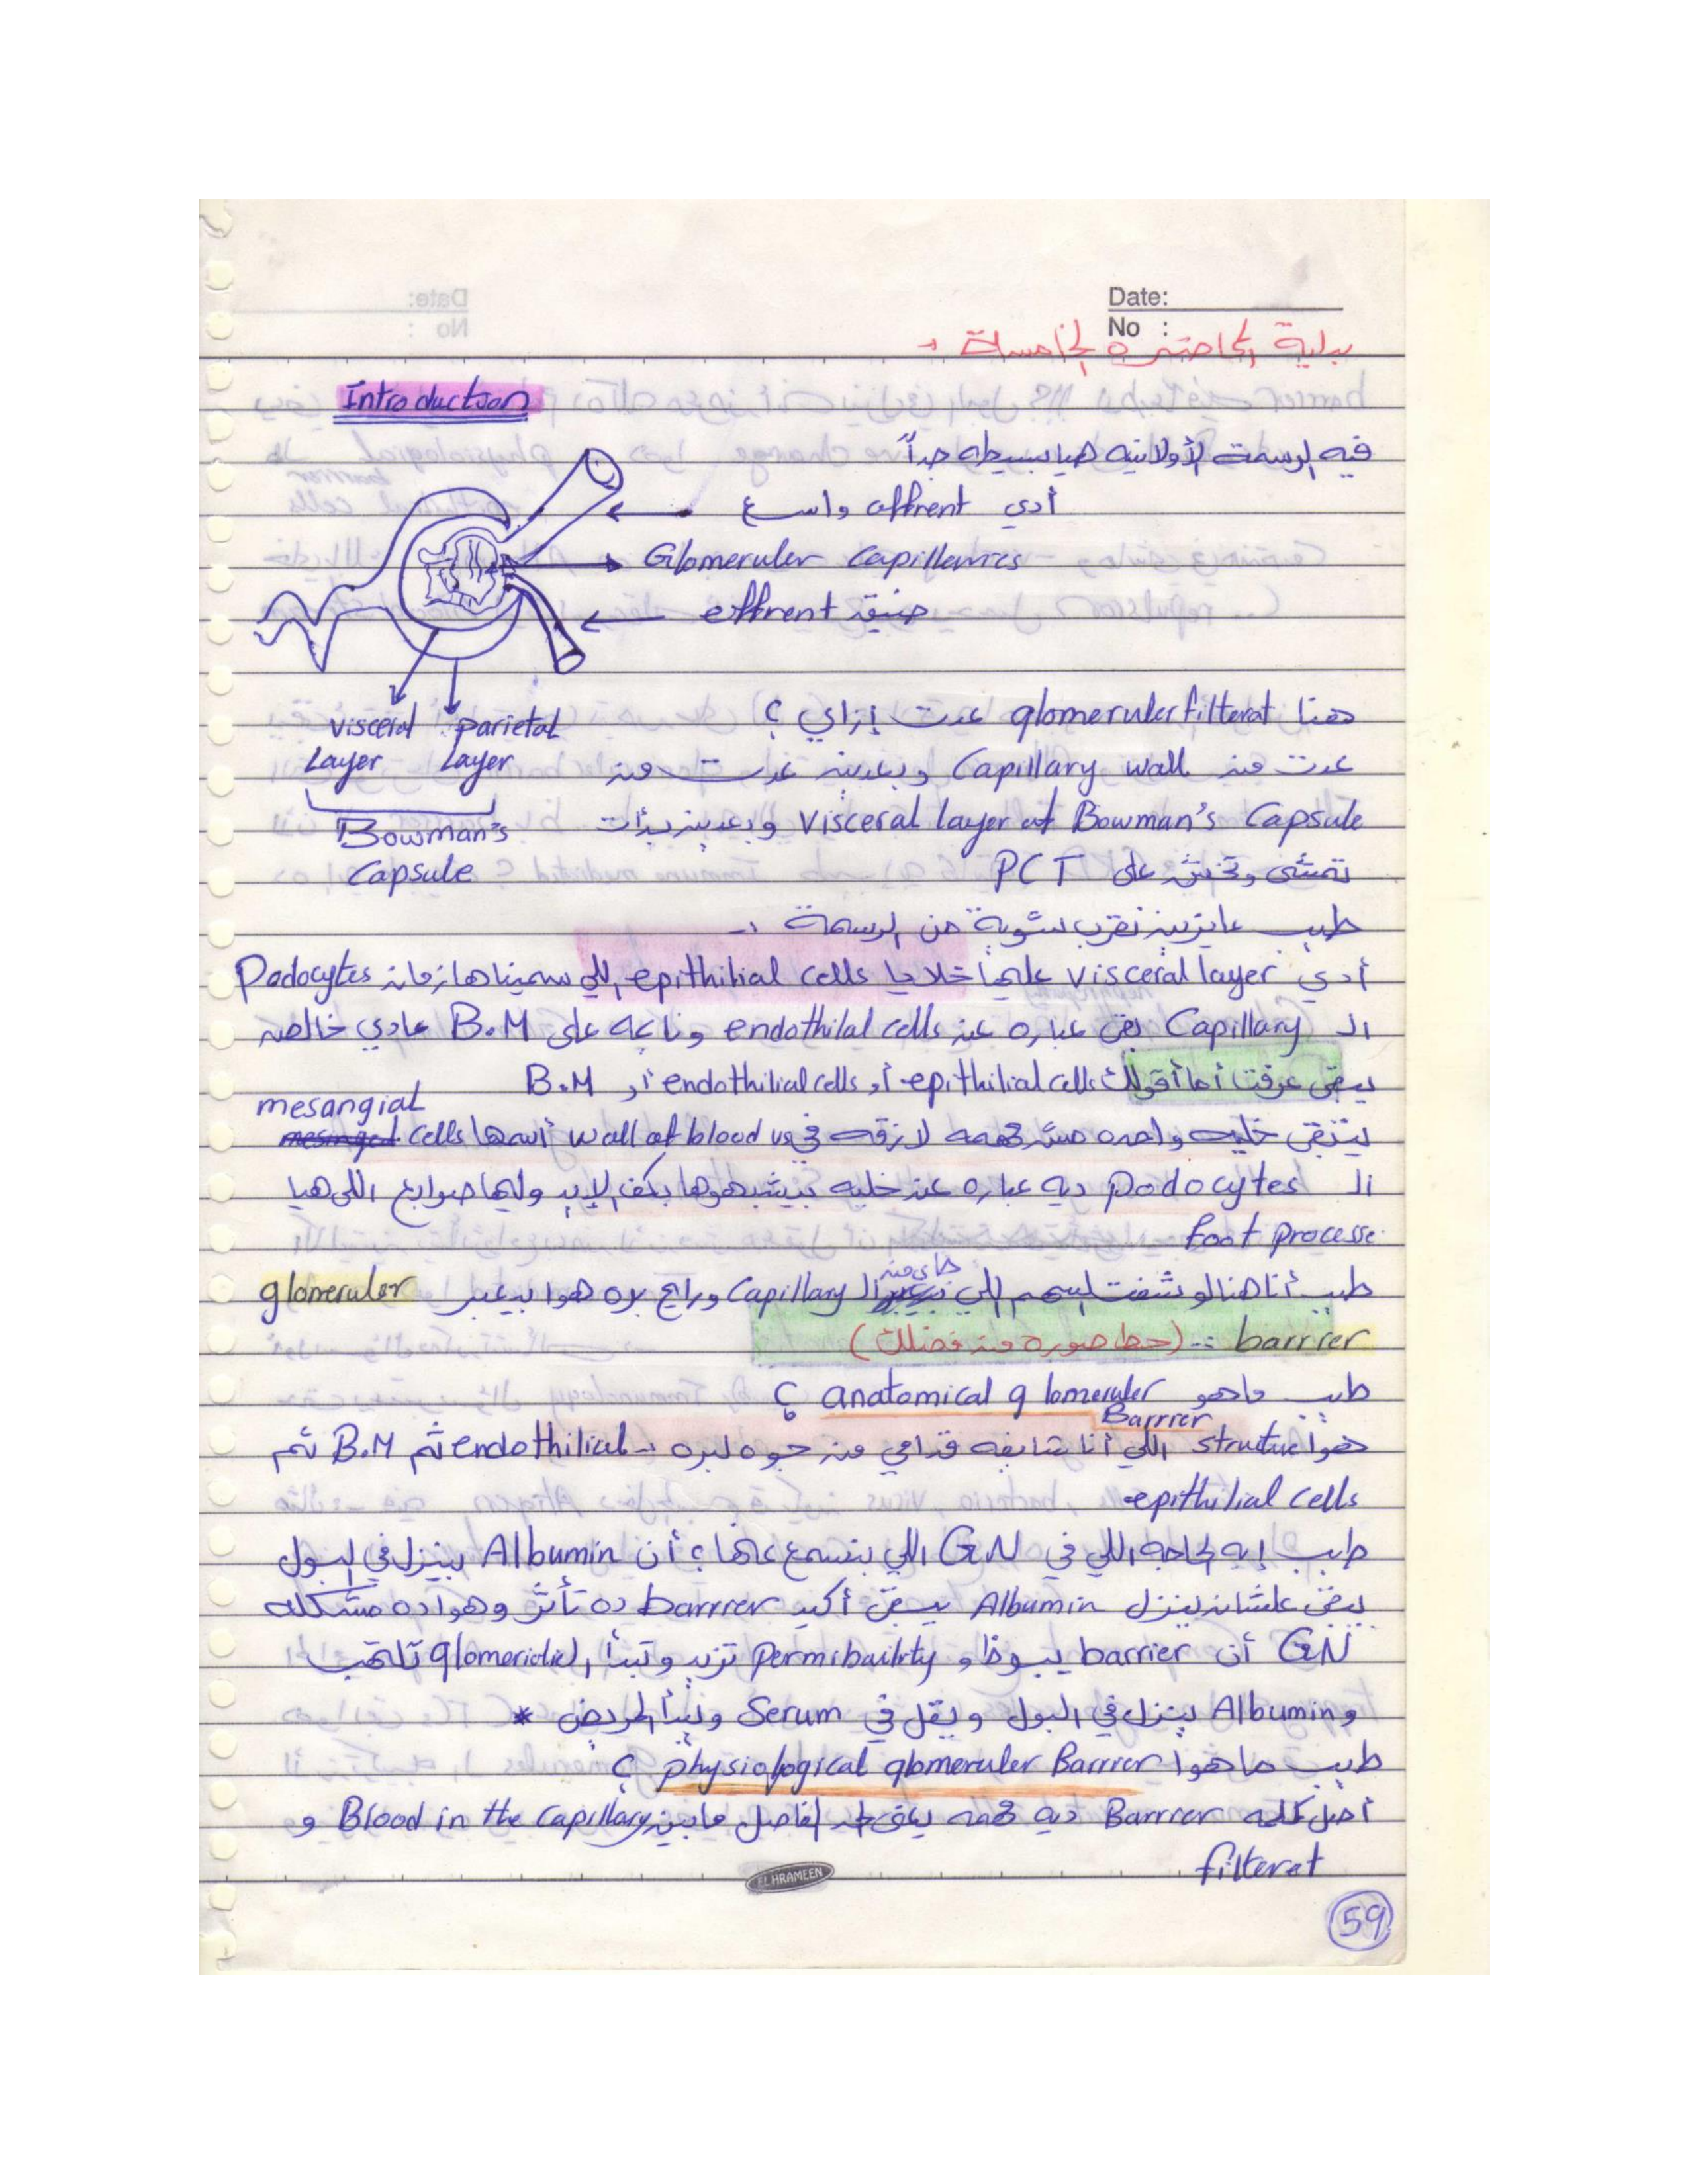 Date:
No :
بداية المحاضرة الخامسة :-
Introduction
فيه الرسمة الأولانيه هيا بسيطه جداً
أدي affrent واسع
Glomeruler Capillarries
effrent ضيق
visceral layer
parietal layer
Bowman's Capsule
هنا glomeruler filterat عدت إزاي ؟
عدت من Capillary wall وبعدين عدت من
visceral layer of Bowman's Capsule وبعدين بدأت
تمشي على PCT
طيب عايزين نقرب شوية من الرسمة :-
أدي visceral layer عليها خلايا epithilial cells اللي سميناها زمان Podocytes
الـ Capillary بقى عباره عن endothilal cells ونايمه على B.M عادي خالص
يبقى عرفت أما أقولك epithilial cells أو endothilial cells أو B.M
يتبقى خليه واحده مش مهمه لازقه في wall of blood vs أسمها mesangial cells
الـ podocytes ديه عباره عن خليه بيشبهوها بكف الإيد وليها صوابع اللي هيا
foot processe
طيب أنا هنا لو شفت السهم اللي جاي من الـ Capillary ورايح بره هوا بيعبر glomeruler
barrier :- (حط صوره من فضلك)
طيب ماهو anatomical glomeruler Barrier ؟
هوا structure اللي أنا شايفه قدامي من جوه لبره :- endothilial ثم B.M ثم
epithilial cells
طيب إيه الحاجه اللي في GN اللي بنسمع عنها؟ أن Albumin بينزل في البول
يبقى علشان ينزل Albumin يبقى أكيد barrier ده تأثر وهوا ده مشكله
GN أن barrier يبوظ و permibailrty تزيد وتبدأ الـ glomerioli تلتهب
و Albumin ينزل في البول ويقل في Serum ويبدأ المريض *
طيب ماهوا physiological glomeruler Barrier ؟
أصل كلمه Barrier ديه مهمه يبقى الحد الفاصل مابين Blood in the Capillary و
filterat
EL HRAMEEN
59